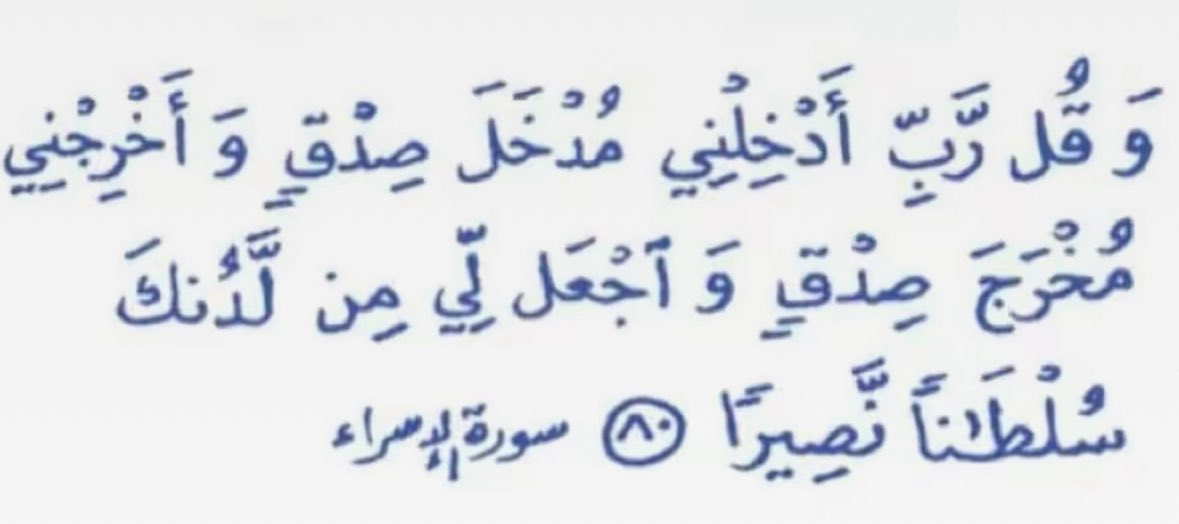 وَ قُل رَّبِّ أَدْخِلْنِي مُدْخَلَ صِدْقٍ وَ أَخْرِجْنِي
مُخْرَجَ صِدْقٍ وَ ٱجْعَل لِّي مِن لَّدُنكَ
سُلْطَـٰناً نَّصِيرًا ٨٠ سورة الإسراء